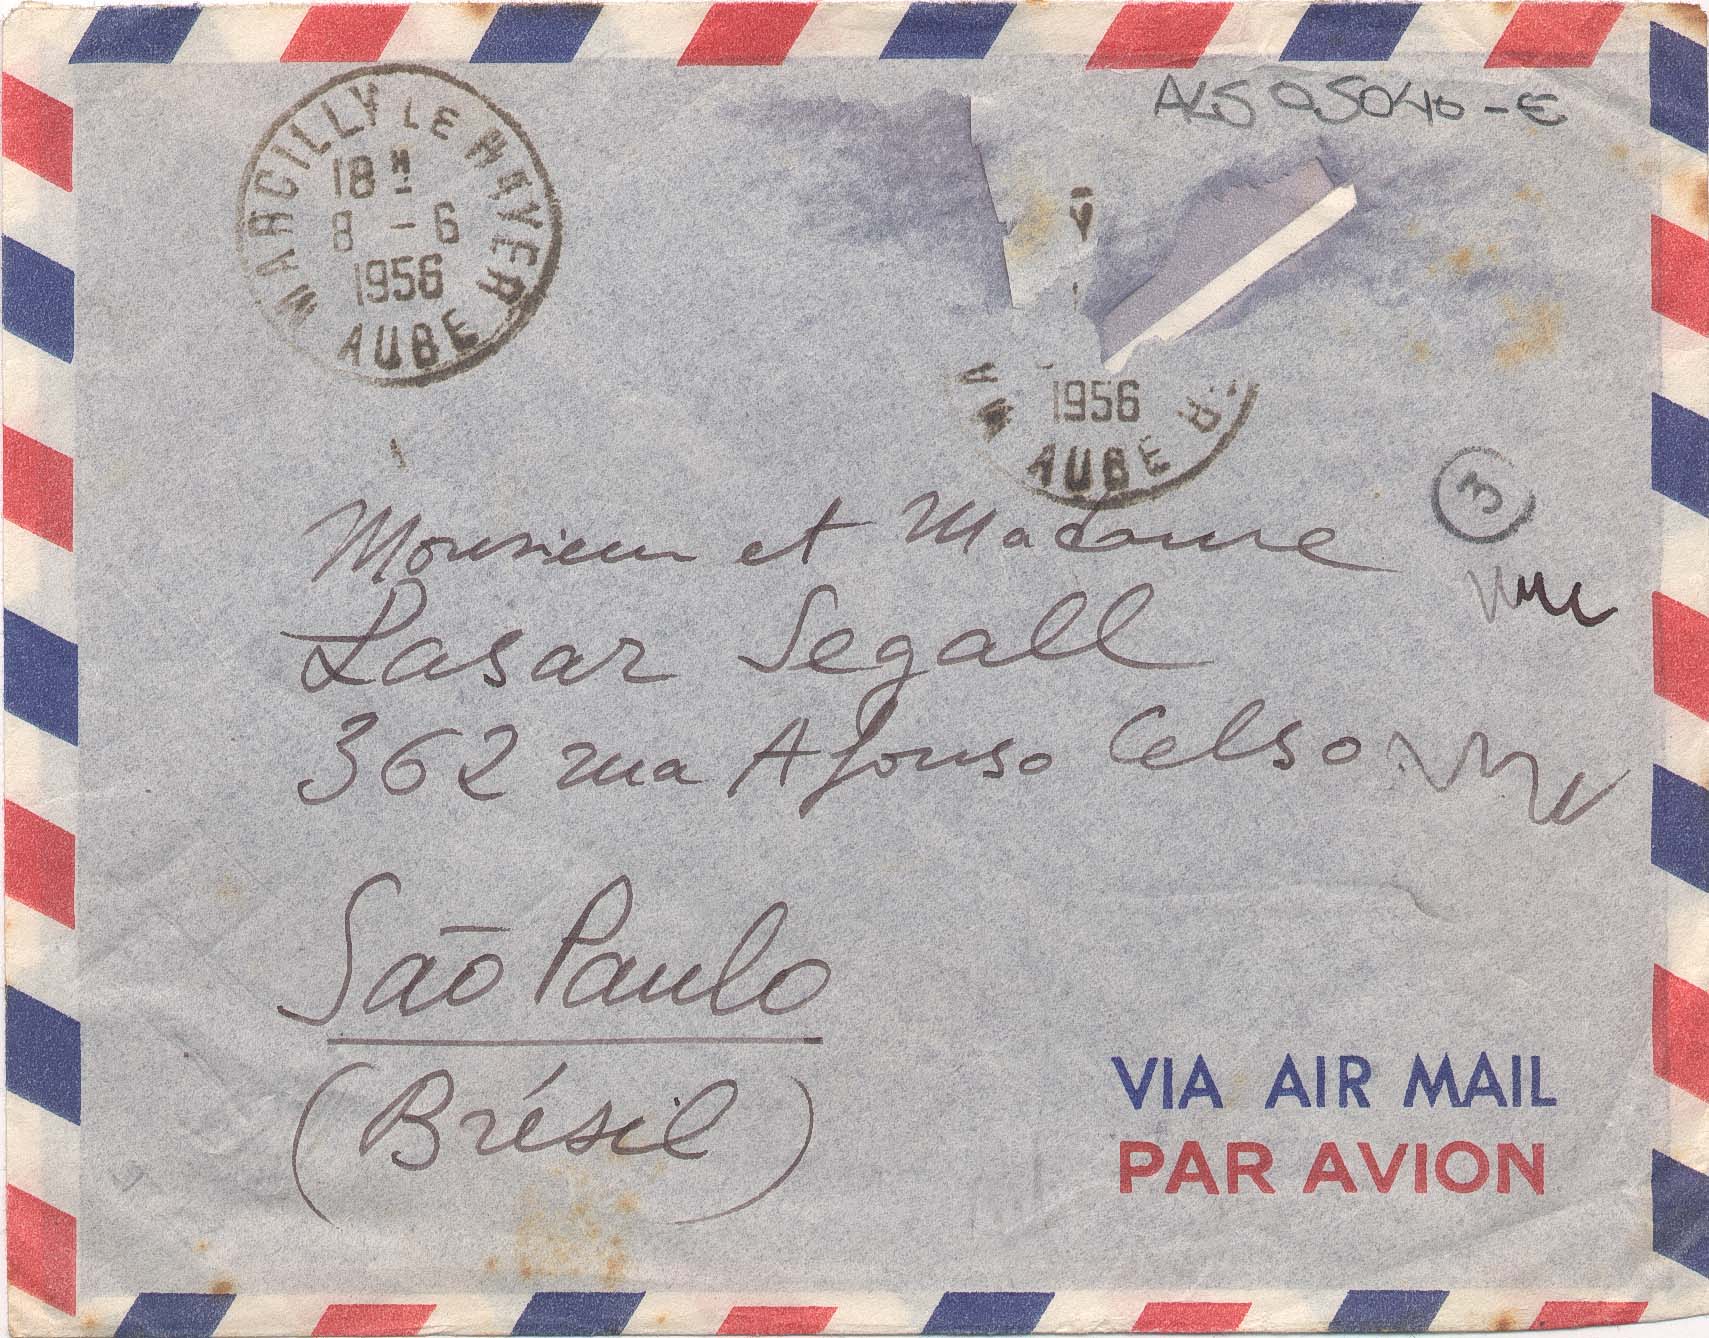 ALS 05040-E
MARCILLY LE HAYER
18H
8 -6
1956
AUBE
1956
AUBE
3
Monsieur et Madame
Lasar Segall
362 rua Afonso Celso
São Paulo
(Brésil)
VIA AIR MAIL
PAR AVION